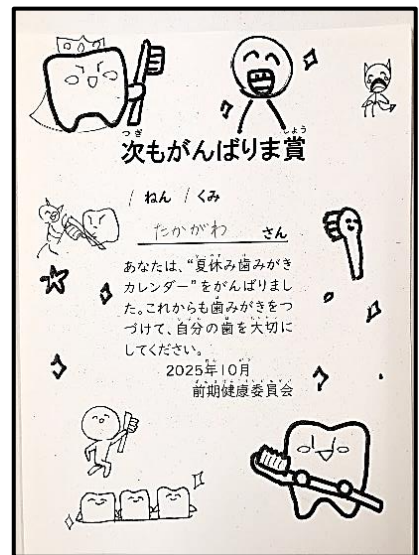 次もがんばりま賞
1ねん1くみ
たかがわ さん
あなたは、“夏休み歯みがき
カレンダー”をがんばりまし
た。これからも歯みがきをつ
づけて、自分の歯を大切に
してください。
2025年10月
前期健康委員会